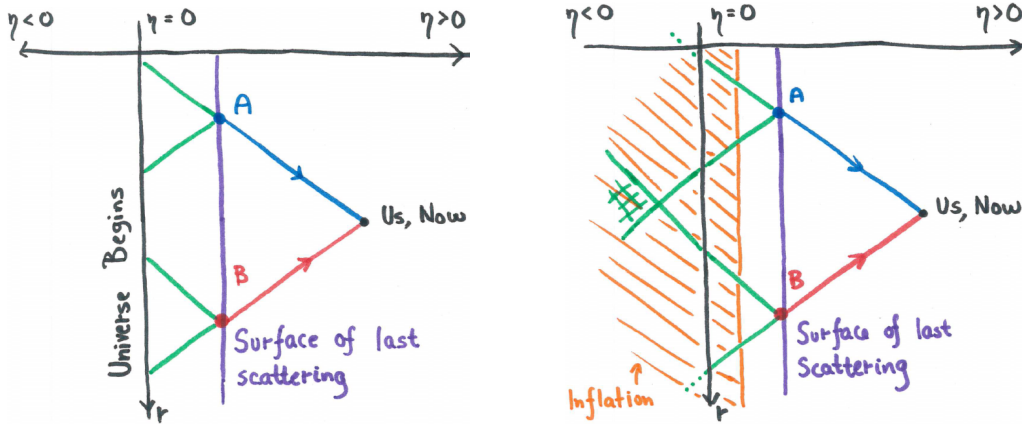 η<0
η=0
η>0
A
Us, Now
B
Universe Begins
Surface of last
scattering
r
η<0
η=0
η>0
A
Us, Now
B
Surface of last
Scattering
Inflation
r